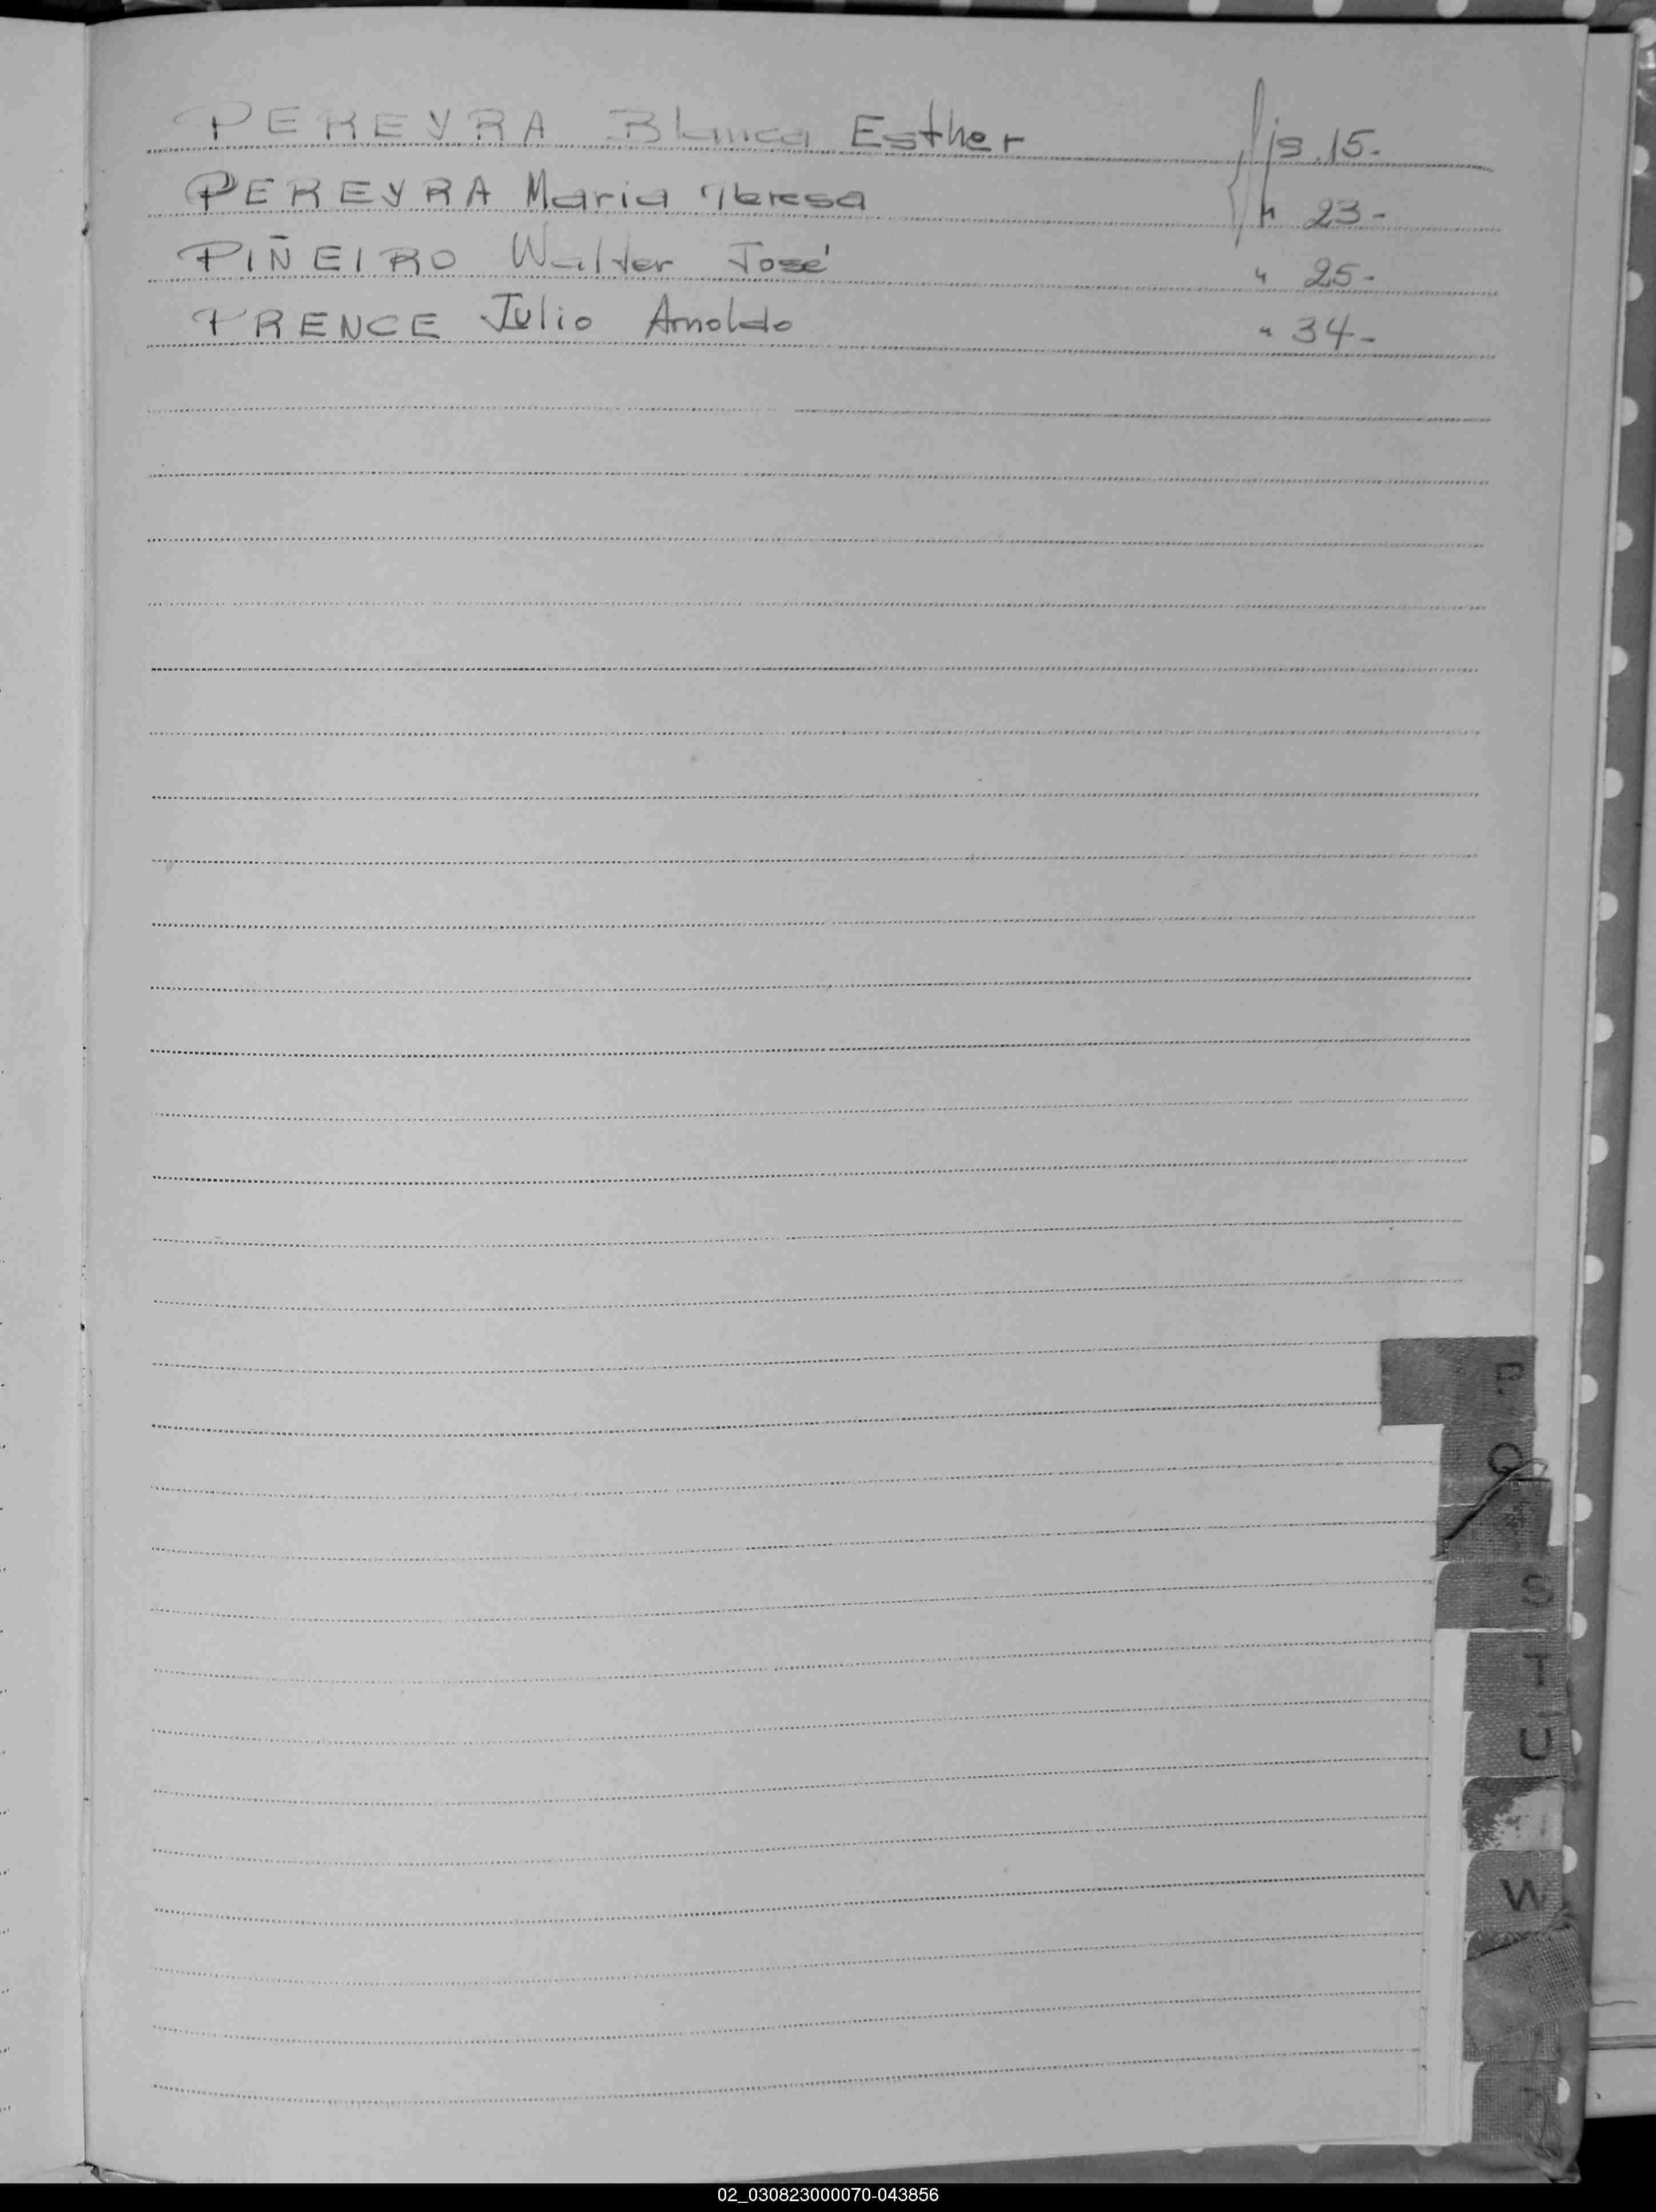 PEREYRA Blanca Esther fjs 15-
PEREYRA Maria Teresa " 23-
PIÑEIRO Walter José " 25-
PRENCE Julio Arnoldo " 34-
P
Q
S
T
U
W
02_030823000070-043856